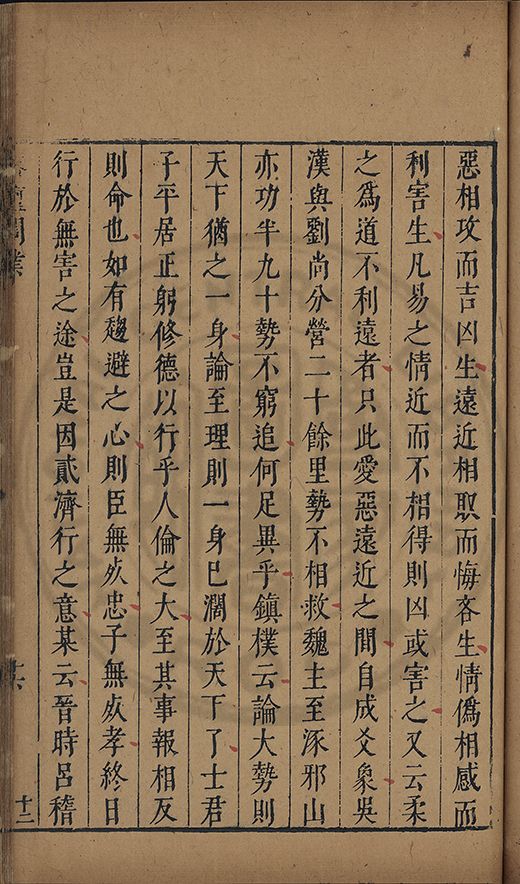 惡相攻而吉凶生遠近相取而悔吝生情僞相感而
利害生凡易之情近而不相得則凶或害之又云柔
之爲道不利遠者只此愛惡遠近之間自成爻象吳
漢與劉尚分營二十餘里勢不相救魏主至涿邪山
亦功半九十勢不窮追何足異乎鎮樸云論大勢則
天下猶之一身論至理則一身已濶於天下了士君
子平居正躬修德以行乎人倫之大至其事報相反
則命也如有趨避之心則臣無必忠子無必孝終日
行於無害之途豈是因貳濟行之意某云晉時呂稽
十二